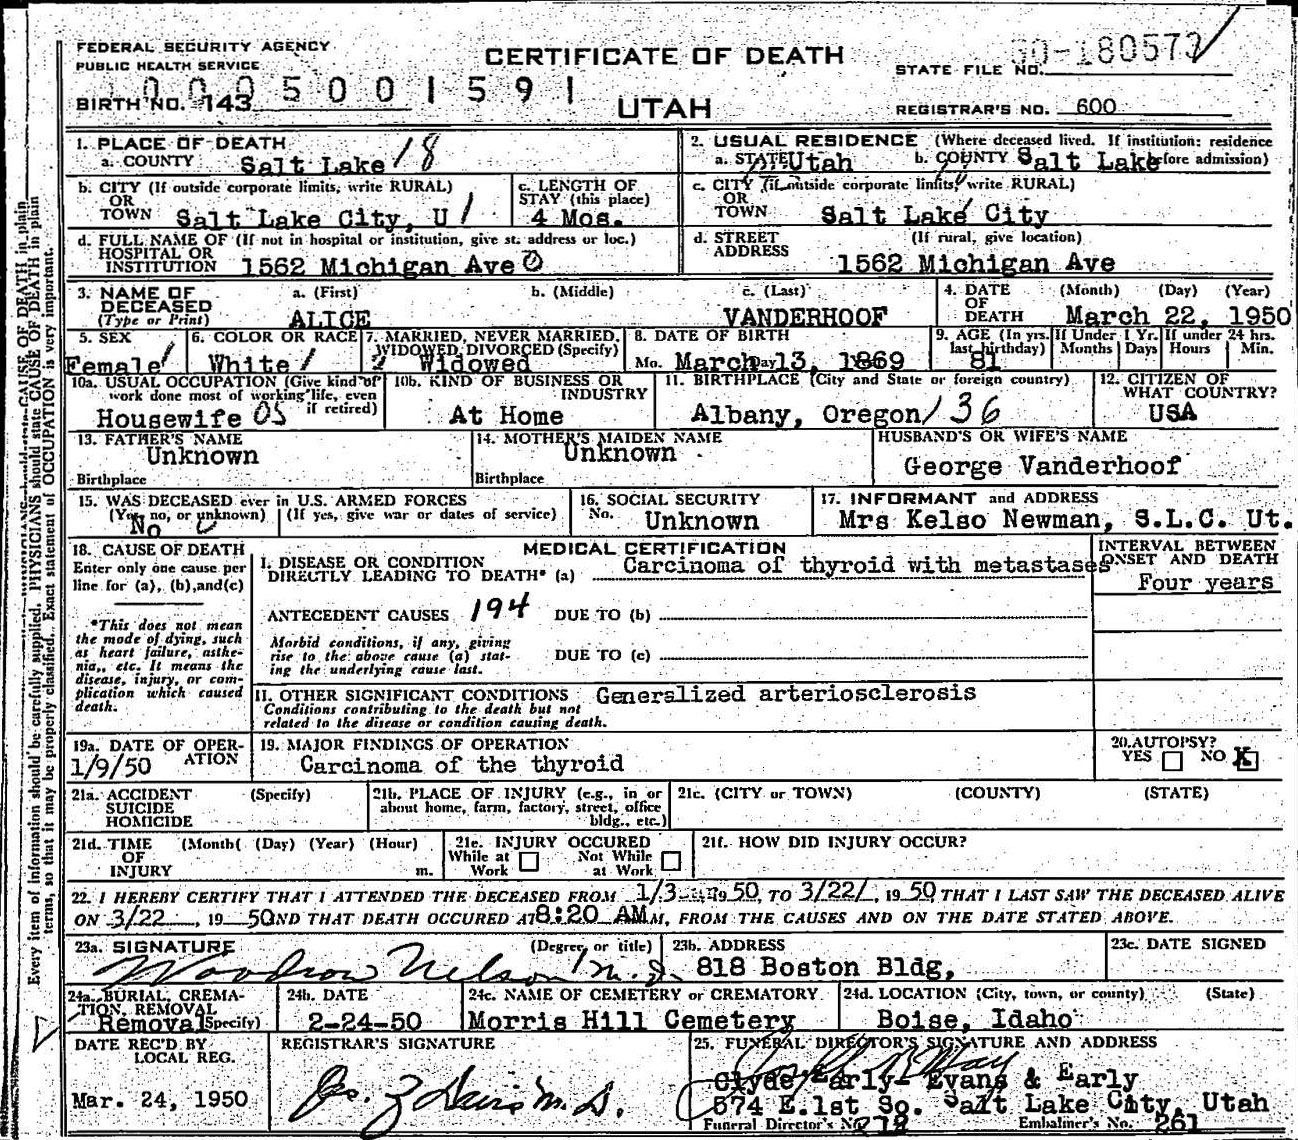 FEDERAL SECURITY AGENCY
PUBLIC HEALTH SERVICE
CERTIFICATE OF DEATH
UTAH
0005001591
BIRTH NO. 143
STATE FILE NO.
REGISTRAR'S NO. 600
1. PLACE OF DEATH
a. COUNTY Salt Lake 18
2. USUAL RESIDENCE (Where deceased lived. If institution: residence before admission)
a. STATE Utah b. COUNTY Salt Lake
b. CITY (If outside corporate limits, write RURAL)
OR
TOWN Salt Lake City, U 1
c. LENGTH OF
STAY (this place)
4 Mos.
c. CITY (if outside corporate limits, write RURAL)
OR
TOWN Salt Lake City
d. FULL NAME OF (If not in hospital or institution, give st. address or loc.)
HOSPITAL OR
INSTITUTION 1562 Michigan Ave 0
d. STREET (If rural, give location)
ADDRESS 1562 Michigan Ave
3. NAME OF
DECEASED
(Type or Print)
a. (First) b. (Middle) c. (Last)
ALICE VANDERHOOF
4. DATE (Month) (Day) (Year)
OF
DEATH March 22, 1950
5. SEX
Female
6. COLOR OR RACE
White
7. MARRIED, NEVER MARRIED,
WIDOWED, DIVORCED (Specify)
Widowed
8. DATE OF BIRTH
Mo. March Day 13, 1869
9. AGE (In yrs. last birthday) 81
If Under 1 Yr. Months Days
If under 24 hrs. Hours Min.
10a. USUAL OCCUPATION (Give kind of
work done most of working life, even
if retired)
Housewife 05
10b. KIND OF BUSINESS OR
INDUSTRY
At Home
11. BIRTHPLACE (City and State or foreign country)
Albany, Oregon / 36
12. CITIZEN OF
WHAT COUNTRY?
USA
13. FATHER'S NAME
Unknown
Birthplace
14. MOTHER'S MAIDEN NAME
Unknown
Birthplace
HUSBAND'S OR WIFE'S NAME
George Vanderhoof
15. WAS DECEASED ever in U.S. ARMED FORCES
(Yes, no, or unknown) (If yes, give war or dates of service)
No
16. SOCIAL SECURITY
No. Unknown
17. INFORMANT and ADDRESS
Mrs Kelso Newman, S.L.C. Ut.
18. CAUSE OF DEATH
Enter only one cause per
line for (a), (b), and (c)
*This does not mean
the mode of dying, such
as heart failure, asthe-
nia,, etc. It means the
disease, injury, or com-
plication which caused
death.
MEDICAL CERTIFICATION
I. DISEASE OR CONDITION
DIRECTLY LEADING TO DEATH* (a) Carcinoma of thyroid with metastases
ANTECEDENT CAUSES 194 DUE TO (b)
Morbid conditions, if any, giving
rise to the above cause (a) stat-
ing the underlying cause last.
DUE TO (c)
INTERVAL BETWEEN
ONSET AND DEATH
Four years
II. OTHER SIGNIFICANT CONDITIONS Generalized arteriosclerosis
Conditions contributing to the death but not
related to the disease or condition causing death.
19a. DATE OF OPER-
ATION
1/9/50
19. MAJOR FINDINGS OF OPERATION
Carcinoma of the thyroid
20. AUTOPSY?
YES NO X
21a. ACCIDENT (Specify)
SUICIDE
HOMICIDE
21b. PLACE OF INJURY (e.g., in or
about home, farm, factory, street, office
bldg., etc.)
21c. (CITY or TOWN) (COUNTY) (STATE)
21d. TIME (Month( (Day) (Year) (Hour)
OF
INJURY m.
21e. INJURY OCCURED
While at Work Not While at Work
21f. HOW DID INJURY OCCUR?
22. I HEREBY CERTIFY THAT I ATTENDED THE DECEASED FROM 1/3 1950, TO 3/22/, 1950 THAT I LAST SAW THE DECEASED ALIVE
ON 3/22, 19 50 ND THAT DEATH OCCURED AT 8:20 AM M, FROM THE CAUSES AND ON THE DATE STATED ABOVE.
23a. SIGNATURE (Degree or title)
Woodrow Nelson M.D.
23b. ADDRESS
818 Boston Bldg,
23c. DATE SIGNED
24a. BURIAL, CREMA-
TION, REMOVAL
Removal (Specify)
24b. DATE
2-24-50
24c. NAME OF CEMETERY or CREMATORY
Morris Hill Cemetery
24d. LOCATION (City, town, or county) (State)
Boise, Idaho
DATE REC'D BY
LOCAL REG.
Mar. 24, 1950
REGISTRAR'S SIGNATURE
25. FUNERAL DIRECTOR'S SIGNATURE AND ADDRESS
Clyde Early- Evans & Early
574 E.1st So. Salt Lake City, Utah
Funeral Director's No. Embalmer's No. 261
Every item of information should be carefully supplied. PHYSICIANS should state CAUSE OF DEATH in plain
terms, so that it may be properly classified. Exact statement of OCCUPATION is very important.